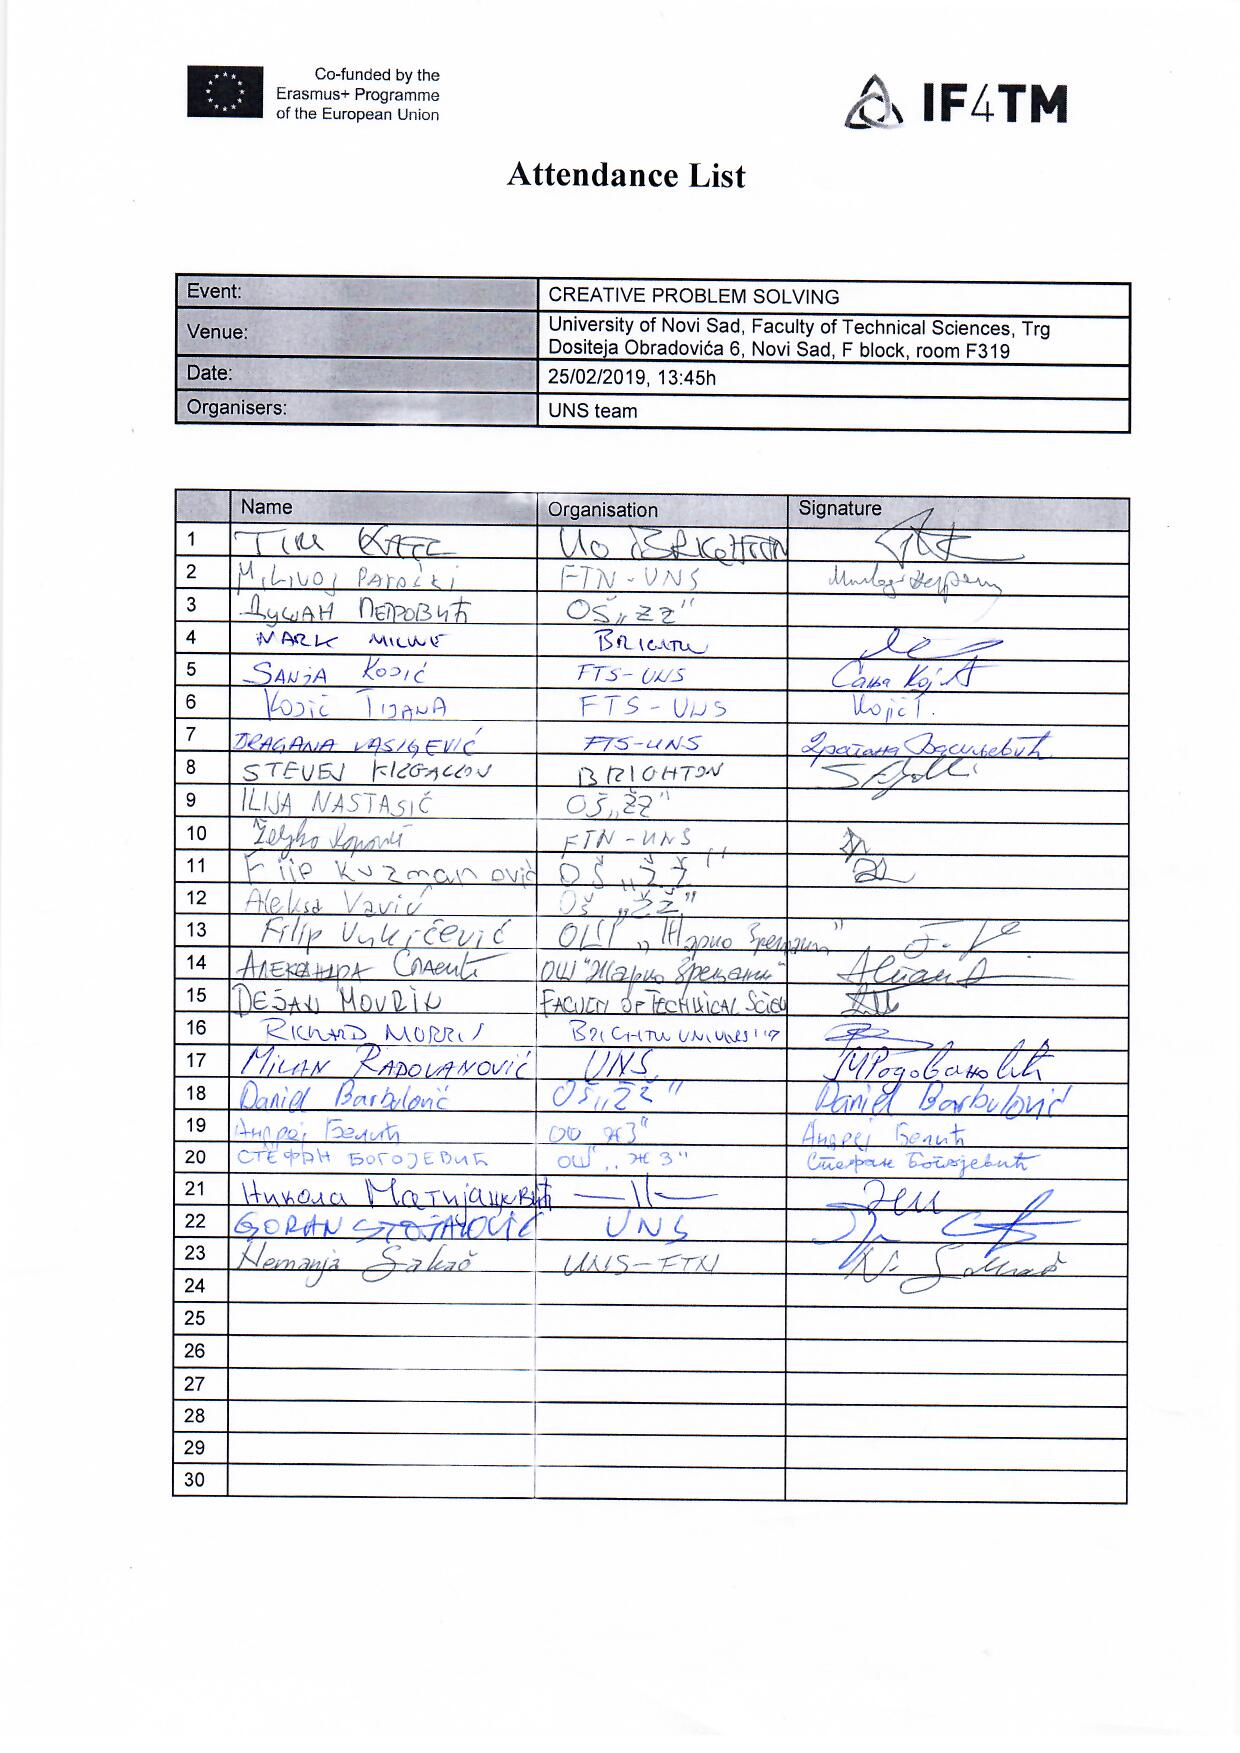 Co-funded by the
Erasmus+ Programme
of the European Union
IF4TM
Attendance List
Event: CREATIVE PROBLEM SOLVING
Venue: University of Novi Sad, Faculty of Technical Sciences, Trg
Dositeja Obradovića 6, Novi Sad, F block, room F319
Date: 25/02/2019, 13:45h
Organisers: UNS team
Name Organisation Signature
1 TIM
2 MILIVOJ FTN-UNS
3 ДУШАН ПЕТРОВИЋ OŠ „ZZ"
4 MARK MILNE BRIGHTON
5 SANJA KOJIĆ FTS-UNS Сања
6 KOJIĆ TIJANA FTS-UNS Kojić T.
7 DRAGANA VASIĿEVIĆ FTS-UNS Драгана Васиљевић
8 STEVEN BRIGHTON
9 ILIJA NASTASIĆ OŠ „ŽZ"
10 Željko Popović FTN-UNS
11 Filip Kuzmanović OŠ „ŽŽ"
12 Aleksa Vavić Oš „ŽŽ"
13 Filip Vukićević ОШ „Жарко Зрењанин"
14 АЛЕКСАНДРА ОШ "Жарко Зрењанин"
15 DEJAN MOVRIN FACULTY OF TECHNICAL SCIEN
16 RICHARD MORRIS BRIGHTON UNIVERSITY
17 MILAN RADOVANOVIĆ UNS МРадовановић
18 Daniel Barbulović OŠ „ZŽ" Daniel Barbulović
19 Андреј Белић ОО ЖЗ" Андреј Белић
20 СТЕФАН БОГОЈЕВИЋ ОШ „ЖЗ" Стефан Богојевић
21 Никола Матијашевић —||—
22 GORAN STOJANOVIĆ UNS
23 Nemanja Sakač UNS-FTN N. Sakač
24
25
26
27
28
29
30